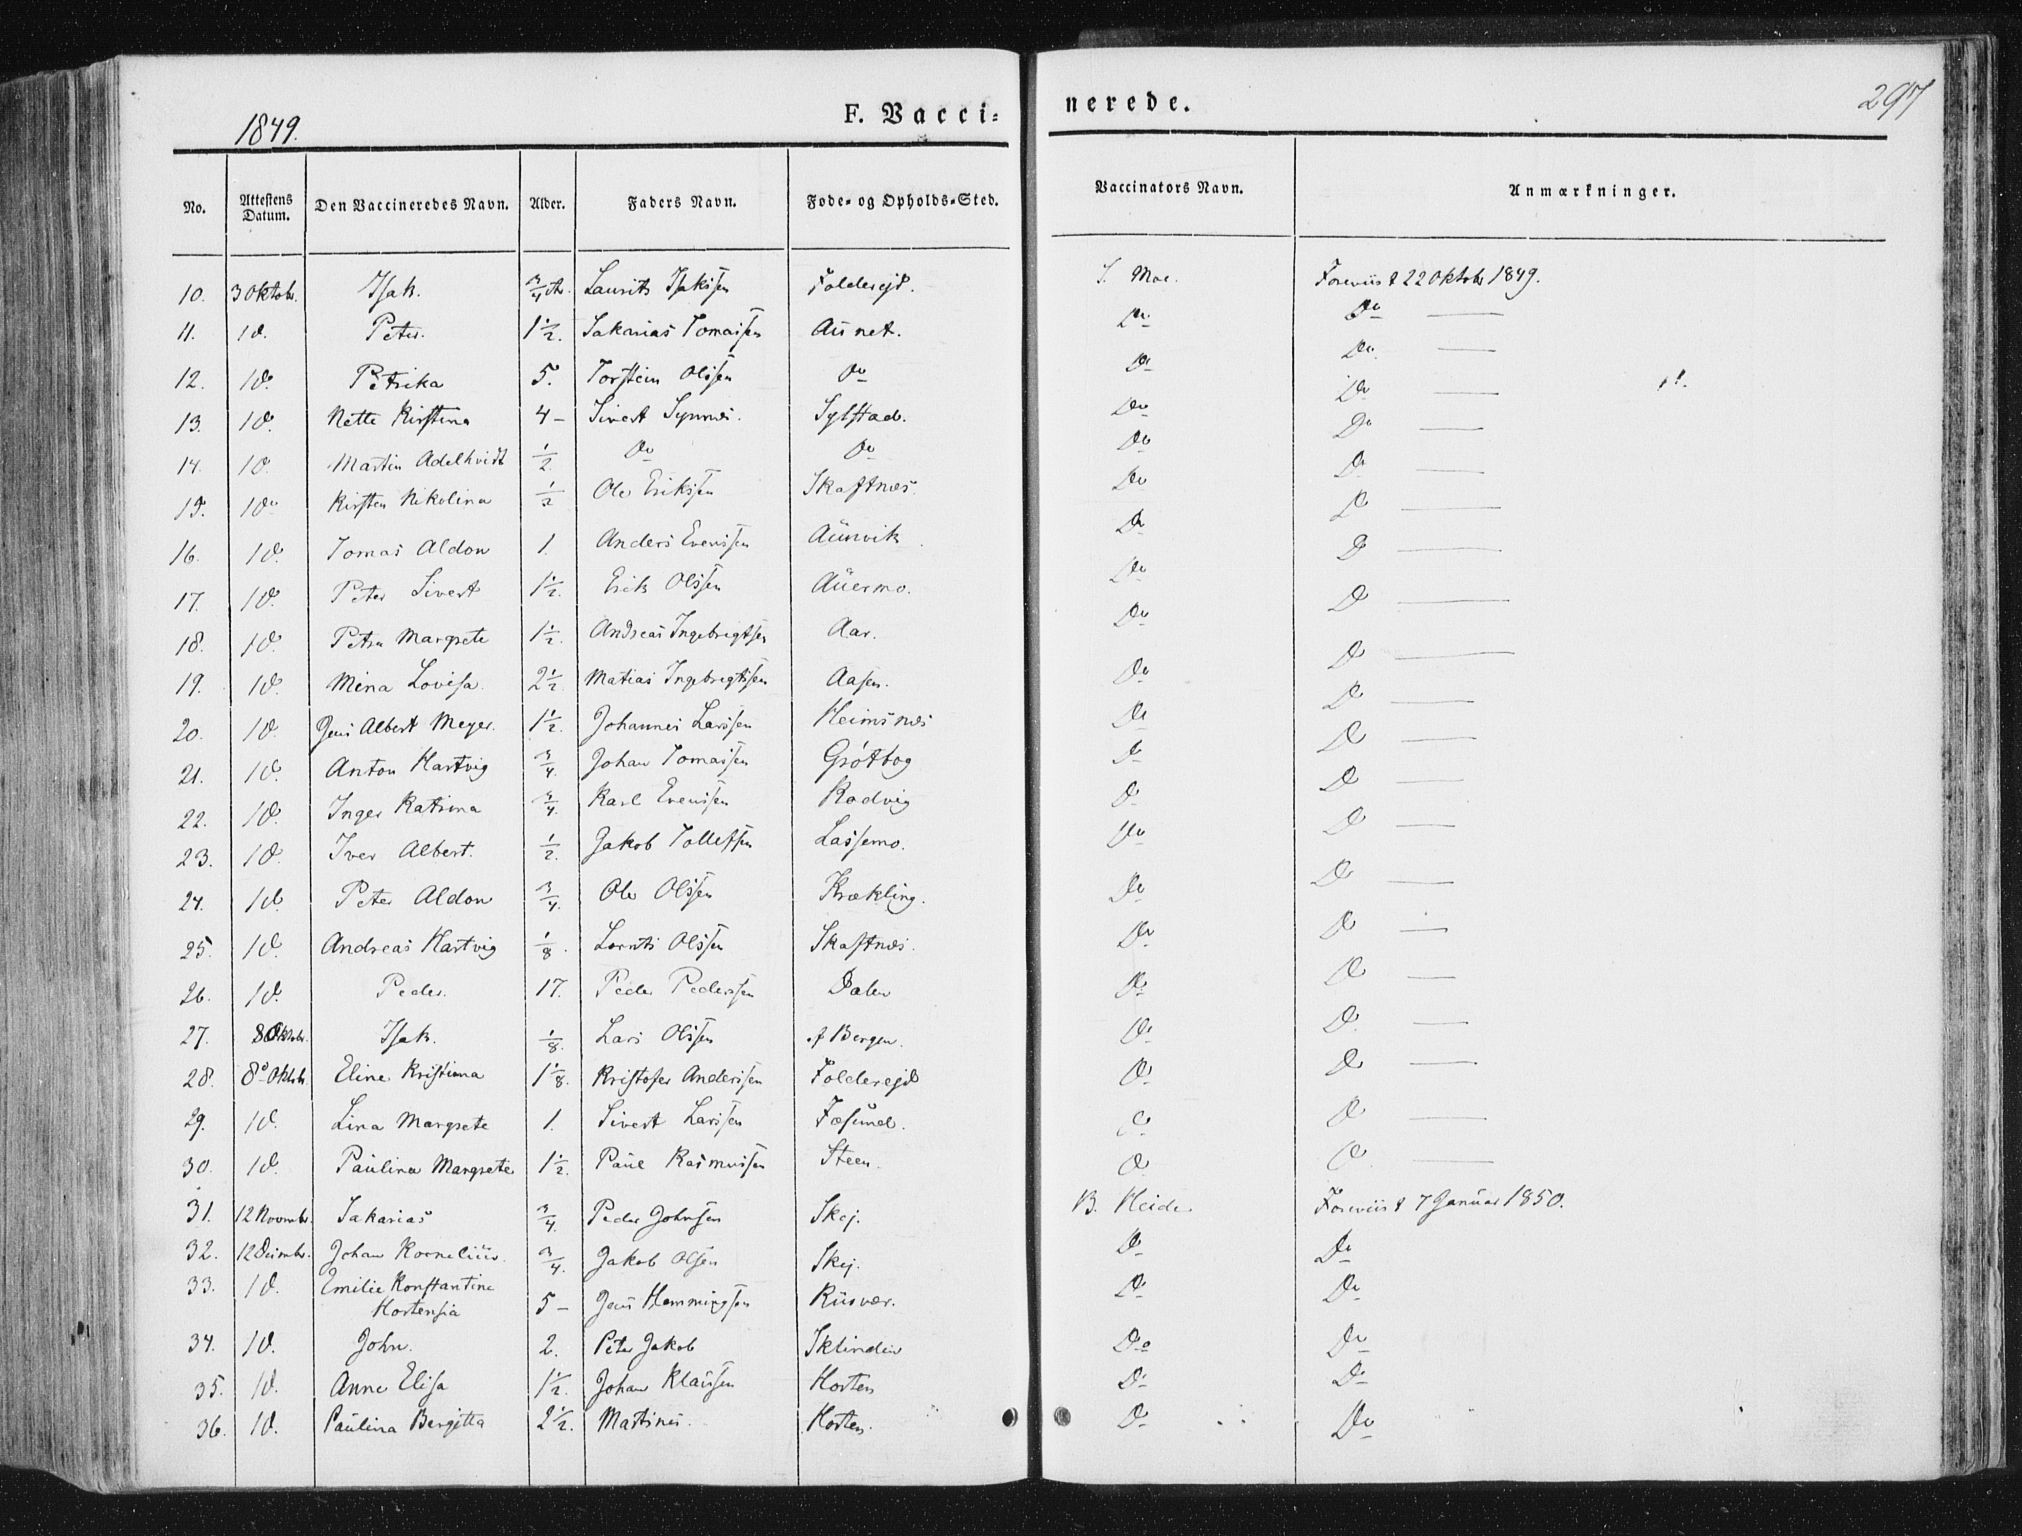 1849.
F. Vacci-
nerede.
297
No. Attestens Datum. Den Vaccineredes Navn. Alder. Faders Navn. Føde- og Opholds-Sted. Vaccinators Navn. Anmærkninger.
10. 3 Oktob. Isak. 3/4 Laurits Isaksen Folderejd. S. Moe. Foreviist 22 Oktob 1849.
11. id. Peter. 1 1/2. Sakarias Tomassen Aunet. Do Do
12. id. Petrika 5. Torstein Olssen Do Do Do
13. id. Nette Kirstina 4 - Sivert Synnes. Sylstad. Do Do
14. id. Martin Adelhvidt 1/2 Do Do Do Do
15. id. Kirsten Nikolina 1/2 Ole Eriksen Skaftnæs. Do Do
16. id. Tomas Aldon 1. Anders Evensen Aunvik Do Do
17. id. Peter Sivert 1 1/2. Erik Olssen Auermo. Do Do
18. id. Petra Margrete 1 1/2. Andreas Ingebrigtsen Aar. Do Do
19. id. Mina Lovisa. 2 1/2. Matias Ingebrigtssen Aasen. Do Do
20. id. Jens Albert Meyer. 1 1/2. Johannes Larssen Heimsnæs Do Do
21. id. Anton Hartvig 3/4. Johan Tomassen Grøtbog Do Do
22. id. Inger Katrina 3/4. Karl Evenssen Rodvig Do Do
23. id. Iver Albert. 1/2. Jakob Tollefsen Lassemo. Do Do
24. id. Peter Aldon 3/4. Ole Olssen Krækling. Do Do
25. id. Andreas Hartvig 1/8. Lornts Olssen Skaftnæs. Do Do
26. id. Peder. 17. Peder Pederssen Dalen Do Do
27. 8 Oktob. Isak. 1/8. Lars Olssen af Bergen. Do Do
28. 8 Oktob Eline Kristinna 1 1/8. Kristofer Anderssen Folderejd Do Do
29. id. Lina Margrete 1. Sivert Larssen Fæsund. Do Do
30. id. Paulina Margrete 1 1/2. Paul Rasmussen Steen. Do Do
31. 12 Novembr. Sakarias 3/4. Peder Johnsen Skej. B. Heide Foreviist 7 Januar 1850.
32. 12 Desembr. Johan Kornelius. 3/4. Jakob Olsen Skej. Do Do
33. id. Emilie Konstantine
Hortensia 5 - Jens Hemmingsen Risvær. Do Do
34. id. John. 2. Peter Jakob Sklinden Do Do
35. id. Anne Elisa 1 1/2. Johan Klausen Horten Do Do
36. id. Paulina Bergitta 2 1/2. Martines. Horten. Do Do